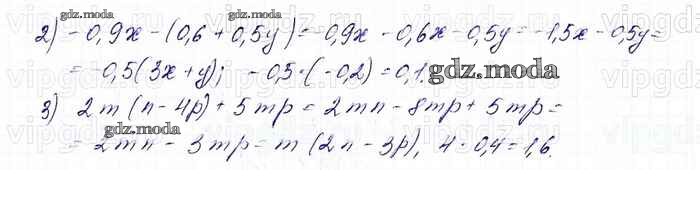 2) -0,9x - (0,6 + 0,5y) = -0,9x - 0,6x - 0,5y = -1,5x - 0,5y =
= -0,5(3x + y); -0,5 · (-0,2) = 0,1.
3) 2m(n - 4p) + 5mp = 2mn - 8mp + 5mp =
= 2mn - 3mp = m(2n - 3p), 4 · 0,4 = 1,6.
gdz.moda
gdz.moda
gdz.moda
gdz.moda
gdz.moda